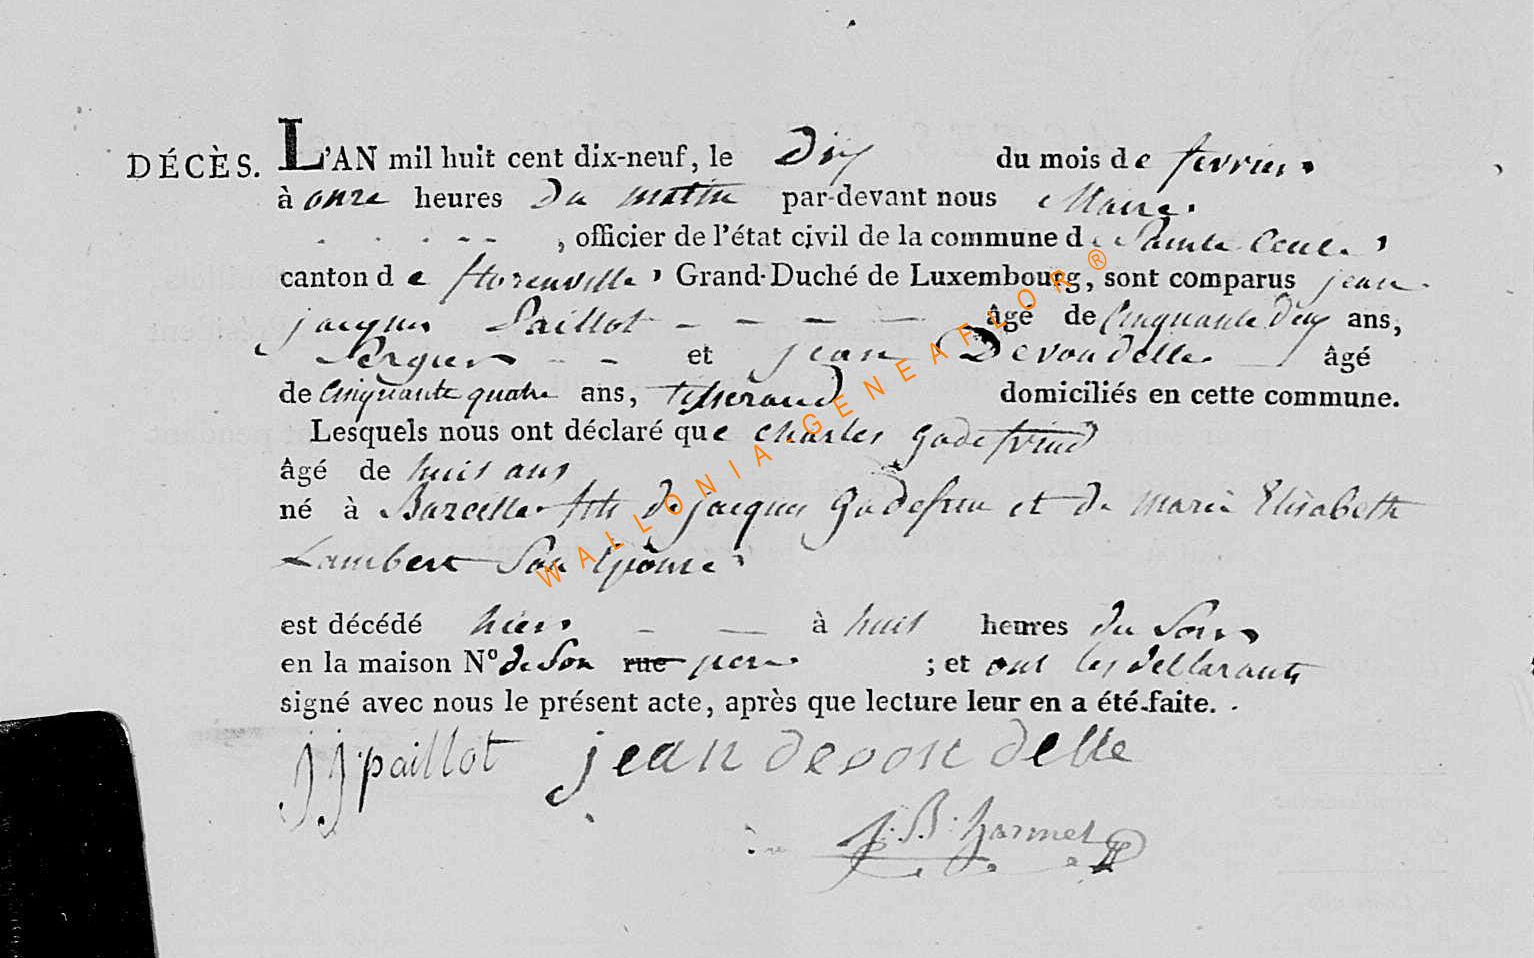 DÉCÈS. L'AN mil huit cent dix-neuf, le Dix du mois de fevrier
à onze heures Du matin par-devant nous Maire
, officier de l'état civil de la commune de Sainte Cecile,
canton de florenville, Grand-Duché de Luxembourg, sont comparus jean
jacques Paillot âgé de Cinquante Deux ans,
Berger et jean Devondelle âgé
de Cinquante quatre ans, tisserand domiciliés en cette commune.
Lesquels nous ont déclaré que charles godefrind
âgé de huit ans
né à fils de jacques godefrin et de marie Elisabeth
Lambert Son Epouse,
est décédé hier à huit heures du Soir
en la maison N° de Son rue pere ; et ont les dellarants
signé avec nous le présent acte, après que lecture leur en a été faite.
jj paillot jean devondelle
J: B: harmel
WALLONIA-GENEAFLOR®